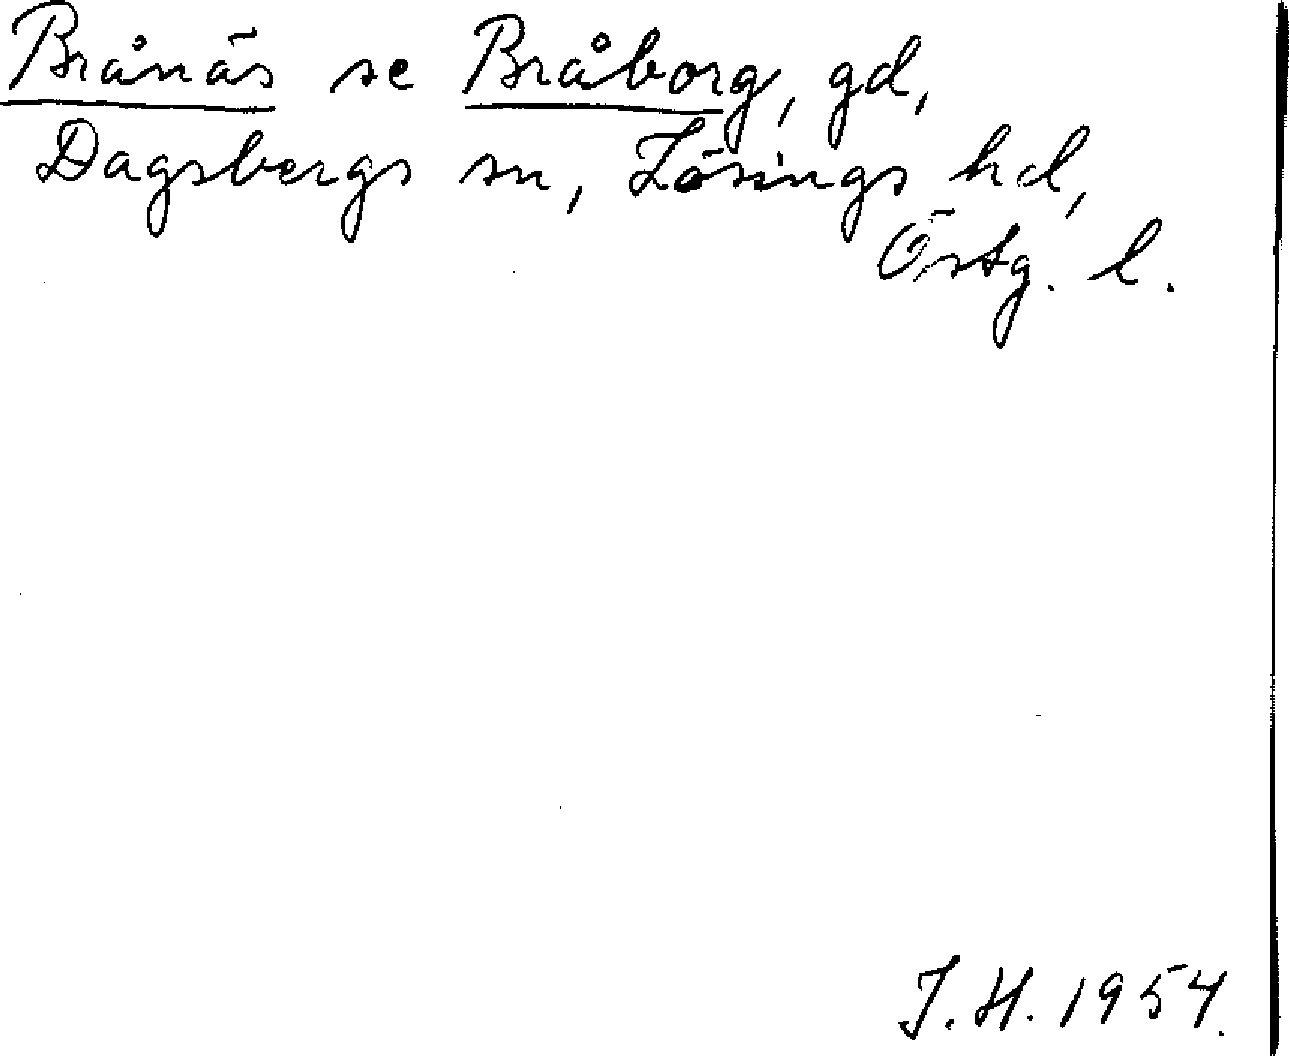 Brånäs se Bråborg, gd,
Dagsbergs sn, Lösings hd,
Östg. l.
J.H. 1954.